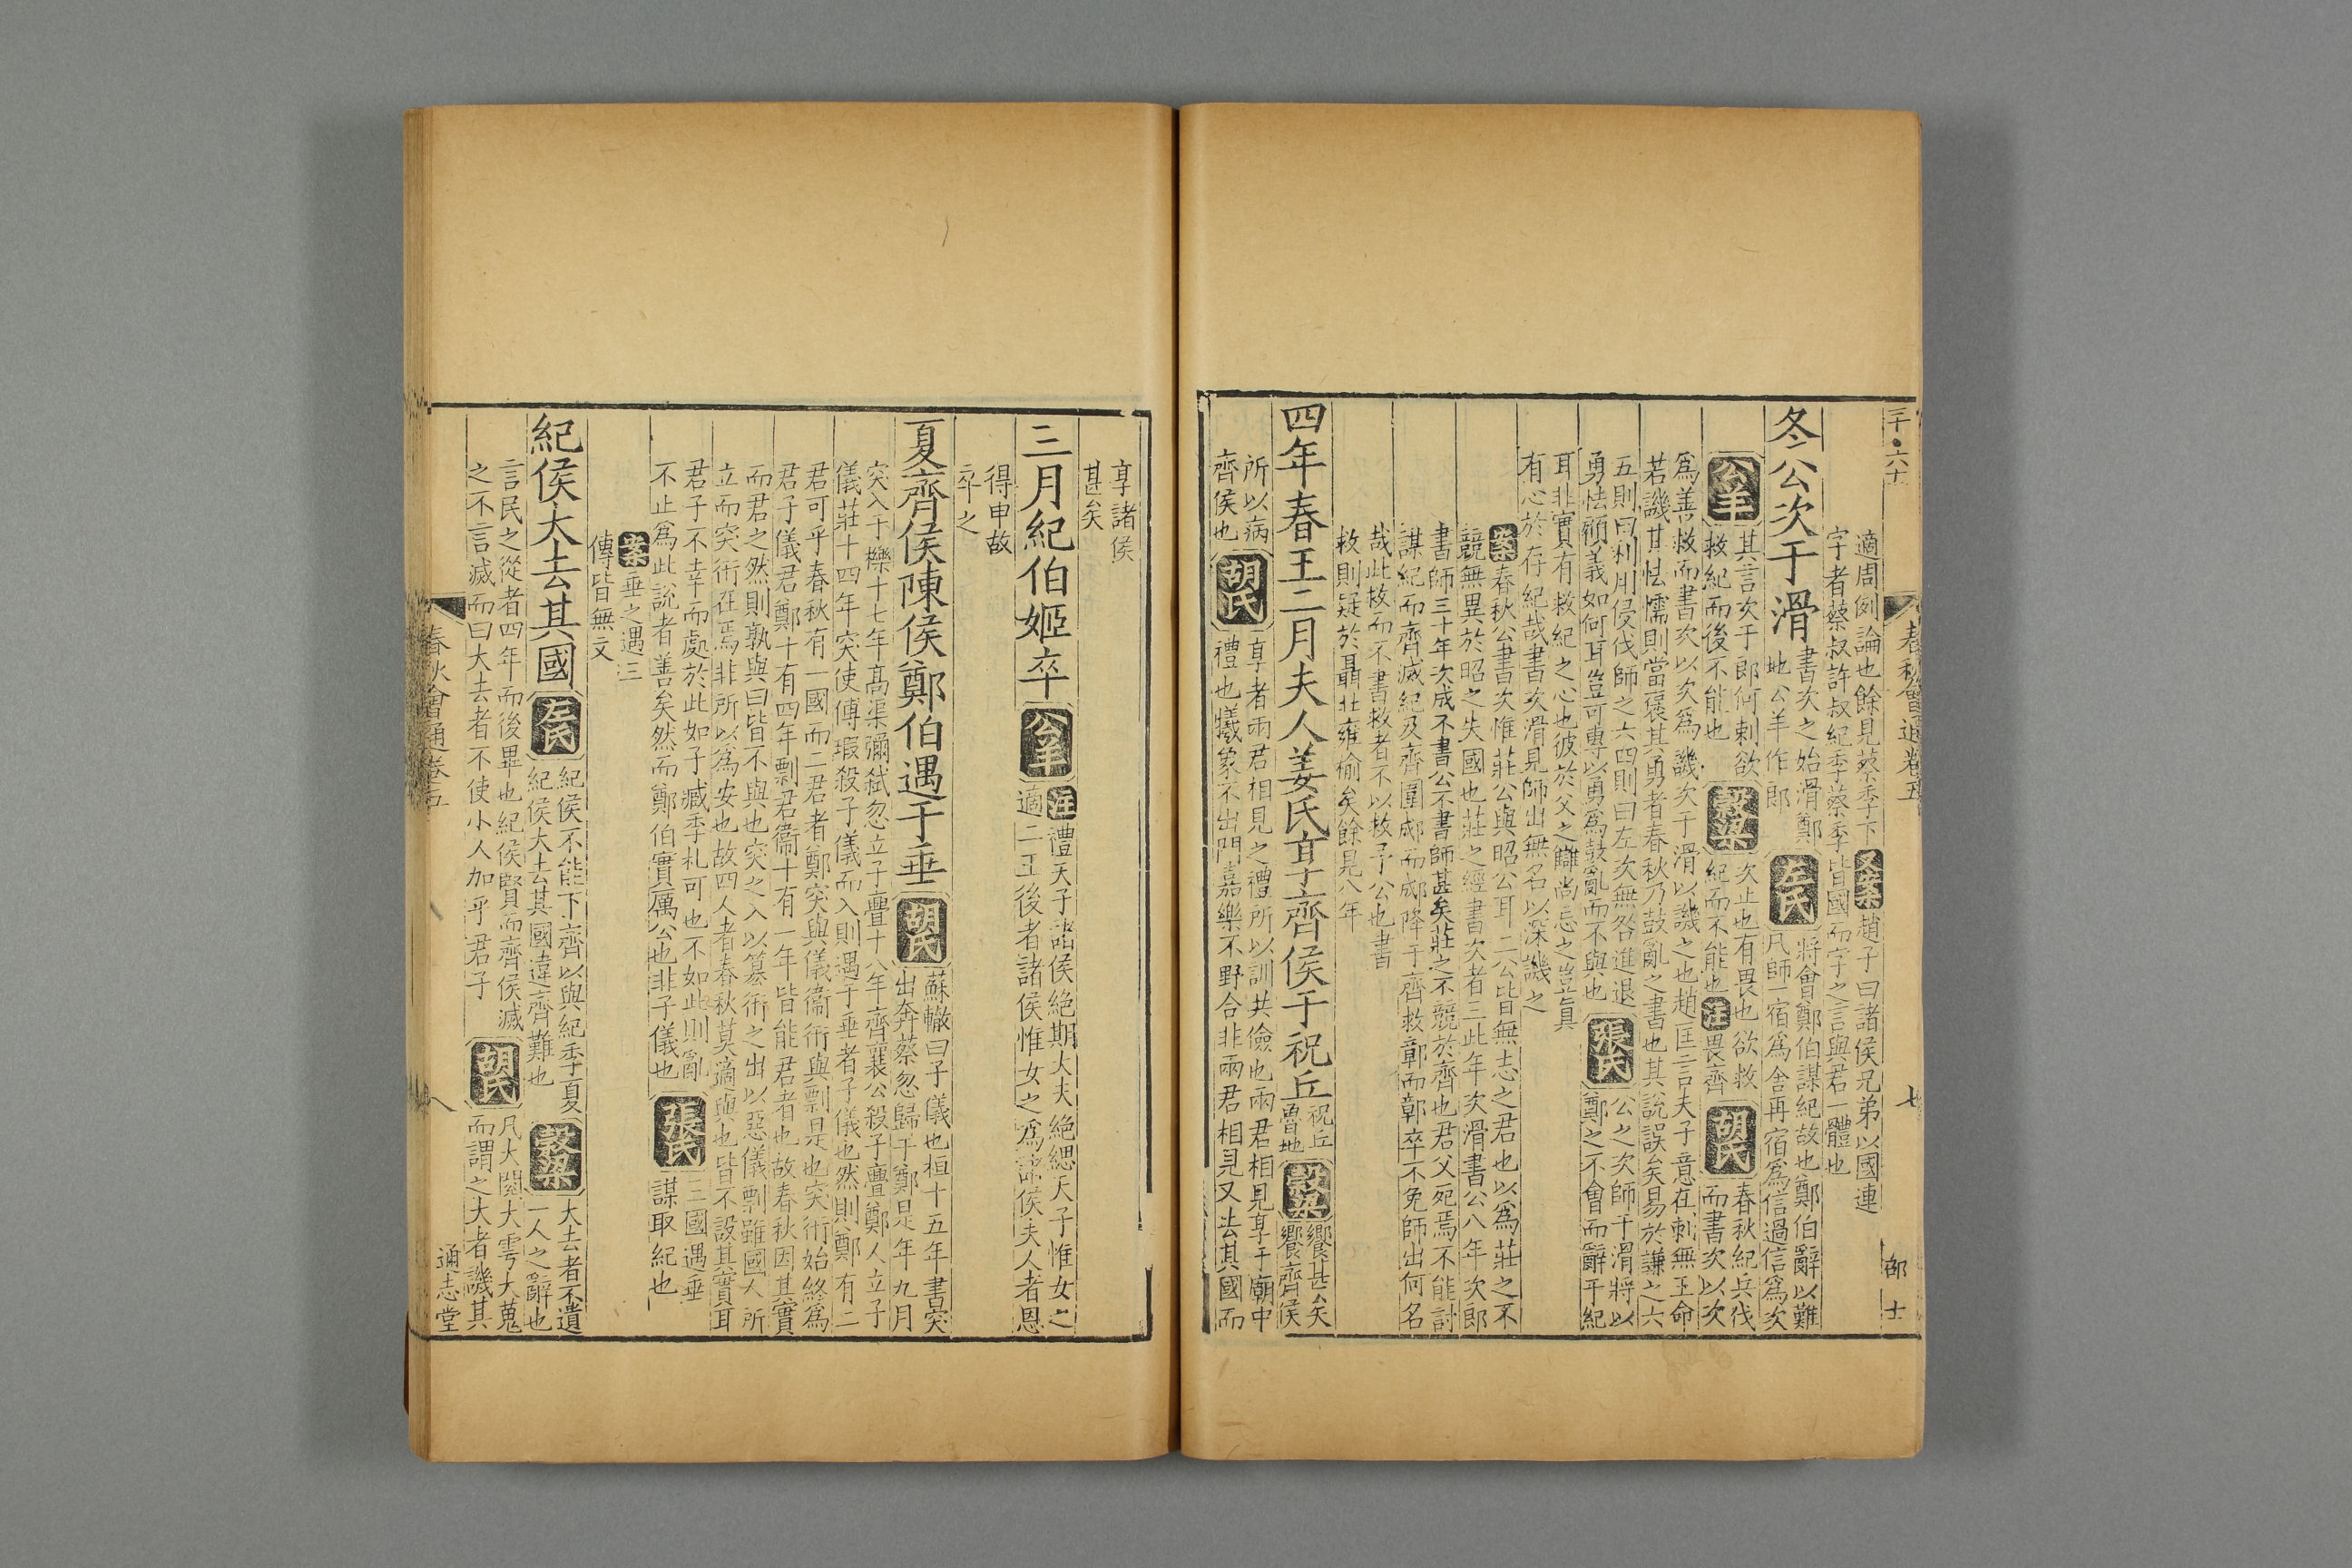 三千●六十
春秋會通卷五
七
邵
士
適周例論也餘見蔡季下又案趙子曰諸侯兄弟以國連
字者蔡叔許叔紀季蔡季皆國而字之言與君一體也
冬公次于滑
書次之始滑鄭
地公羊作郎
左氏
將會鄭伯謀紀故也鄭伯辭以難
凡師一宿爲舍再宿爲信過信爲次
公羊
其言次于郎何刺欲
救紀而後不能也
穀梁
次止也有畏也欲救
紀而不能也注畏齊
胡氏
春秋紀兵伐
而書次以次
爲善救而書次以次爲譏次于滑以譏之也趙匡言夫子意在刺無王命
若譏其怯懦則當褒其勇者春秋乃鼓亂之書也其說誤矣易於謙之六
五則曰利用侵伐師之六四則曰左次無咎進退
勇怯顧義如何耳豈可專以勇爲鼓亂而不與也
張氏
公之次師于滑將以
鄭之不會而辭于紀
耳非實有救紀之心也彼於父之讎尚忘之豈真
有心於存紀哉書次滑見師出無名以深譏之
案春秋公書次惟莊公與昭公耳二公皆無志之君也以爲莊之不
競無異於昭之失國也莊之經書次者三此年次滑書公八年次郎
書師三十年次成不書公不書師甚矣莊之不競於齊也君父死焉不能討
謀紀而齊滅紀及齊圍郕而郕降于齊救鄣而鄣卒不免師出何名
哉此救而不書救者不以救予公也書
救則疑於聶北雍榆矣餘見八年
四年春王二月夫人姜氏享齊侯于祝丘
祝丘
魯地
穀梁
饗甚矣
饗齊侯
所以病
齊侯也
胡氏
享者兩君相見之禮所以訓共儉也兩君相見享于廟中
禮也犧象不出門嘉樂不野合非兩君相見又去其國而
享諸侯
甚矣
三月紀伯姬卒
公羊
注禮天子諸侯絕期大夫絕緦天子惟女之
適二王後者諸侯惟女之爲諸侯夫人者恩
得申故
卒之
夏齊侯陳侯鄭伯遇于垂
胡氏
蘇轍曰子儀也桓十五年書突
出奔蔡忽歸于鄭是年九月
突入于櫟十七年高渠彌弒忽立子亹十八年齊襄公殺子亹鄭人立子
儀莊十四年突使傅瑕殺子儀而入則遇于垂者子儀也然則鄭有二
君可乎春秋有一國而二君者鄭突與儀衞衎與剽是也突衎始終爲
君子儀君鄭十有四年剽君衞十有一年皆能君者也故春秋因其實
而君之然則孰與曰皆不與也突之入以篡衎之出以惡儀剽雖國人所
立而突衎在焉非所以爲安也故四人者春秋莫適與也皆不設其實耳
君子不幸而處於此如子臧季札可也不如此則亂
不止爲此說者善矣然而鄭伯實厲公也非子儀也
張氏
三國遇垂
謀取紀也
案垂之遇三
傳皆無文
紀侯大去其國
左氏
紀侯不能下齊以與紀季夏
紀侯大去其國違齊難也
穀梁
大去者不遺
一人之辭也
言民之從者四年而後畢也紀侯賢而齊侯滅
之不言滅而曰大去者不使小人加乎君子
胡氏
凡大閱大雩大蒐
而謂之大者譏其
春秋會通卷五
八
通志堂